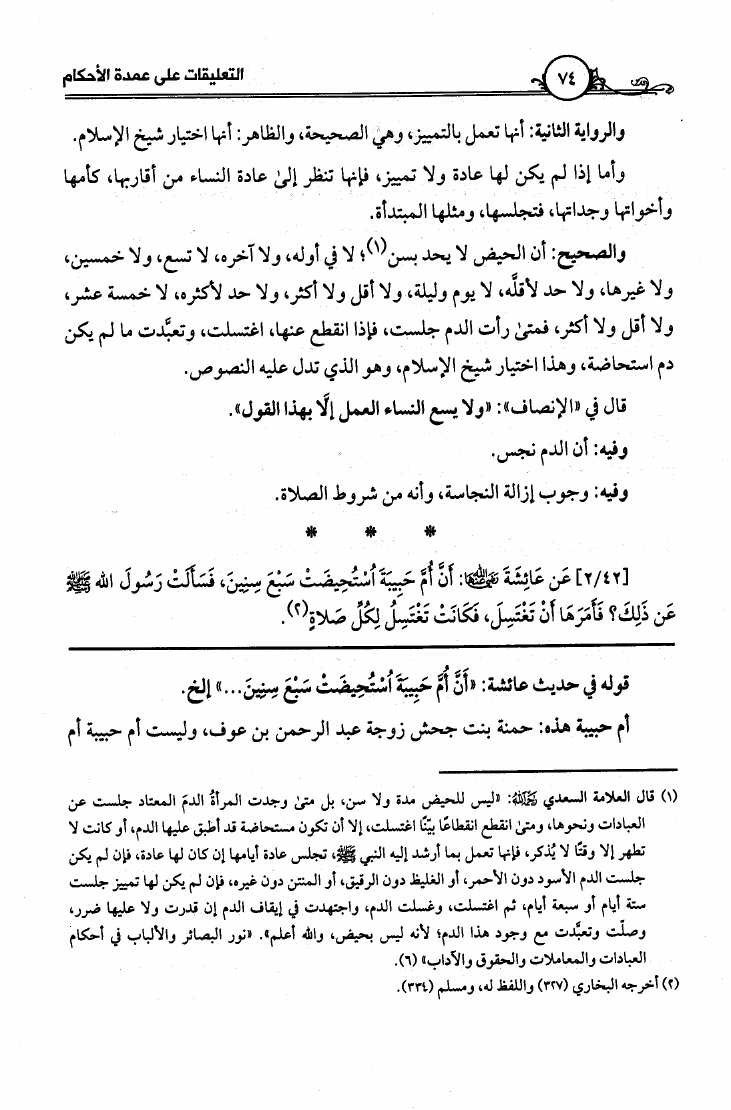 ٧٤
التعليقات على عمدة الأحكام
والرواية الثانية: أنها تعمل بالتمييز، وهي الصحيحة، والظاهر: أنها اختيار شيخ الإسلام.
وأما إذا لم يكن لها عادة ولا تمييز، فإنها تنظر إلىٰ عادة النساء من أقاربها، كأمها
وأخواتها وجداتها، فتجلسها، ومثلها المبتدأة.
والصحيح: أن الحيض لا يحد بسن(١)؛ لا في أوله، ولا آخره، لا تسع، ولا خمسين،
ولا غيرها، ولا حد لأقلَّه، لا يوم وليلة، ولا أقل ولا أكثر، ولا حد لأكثره، لا خمسة عشر،
ولا أقل ولا أكثر، فمتىٰ رأت الدم جلست، فإذا انقطع عنها، اغتسلت، وتعبَّدت ما لم يكن
دم استحاضة، وهذا اختيار شيخ الإسلام، وهو الذي تدل عليه النصوص.
قال في «الإنصاف»: «ولا يسع النساء العمل إلَّا بهذا القول».
وفيه: أن الدم نجس.
وفيه: وجوب إزالة النجاسة، وأنه من شروط الصلاة.
* * *
[٢/٤٢] عَن عَائِشَةَ رَضِيَ اللَّهُ عَنْهَا: أَنَّ أُمَّ حَبِيبَةَ اُسْتُحِيضَتْ سَبْعَ سِنِينَ، فَسَأَلَتْ رَسُولَ الله ﷺ
عَن ذَلِكَ؟ فَأَمَرَهَا أَنْ تَغْتَسِلَ، فَكَانَتْ تَغْتَسِلُ لِكُلِّ صَلاةٍ(٢).
قوله في حديث عائشة: «أَنَّ أُمَّ حَبِيبَةَ اُسْتُحِيضَتْ سَبْعَ سِنِينَ...» إلخ.
أم حبيبة هذه: حمنة بنت جحش زوجة عبد الرحمن بن عوف، وليست أم حبيبة أم
(١) قال العلامة السعدي رَحِمَهُ اللَّهُ: «ليس للحيض مدة ولا سن، بل متىٰ وجدت المرأةُ الدمَ المعتاد جلست عن
العبادات ونحوها، ومتىٰ انقطع انقطاعًا بيِّنًا اغتسلت، إلا أن تكون مستحاضة قد أطبق عليها الدم، أو كانت لا
تطهر إلا وقتًا لا يُذكر، فإنها تعمل بما أرشد إليه النبي ﷺ، تجلس عادة أيامها إن كان لها عادة، فإن لم يكن
جلست الدم الأسود دون الأحمر، أو الغليظ دون الرقيق، أو المنتن دون غيره، فإن لم يكن لها تمييز جلست
ستة أيام أو سبعة أيام، ثم اغتسلت، وغسلت الدم، واجتهدت في إيقاف الدم إن قدرت ولا عليها ضرر،
وصلَّت وتعبَّدت مع وجود هذا الدم؛ لأنه ليس بحيض، والله أعلم». «نور البصائر والألباب في أحكام
العبادات والمعاملات والحقوق والآداب» (٦).
(٢) أخرجه البخاري (٣٢٧) واللفظ له، ومسلم (٣٣٤).